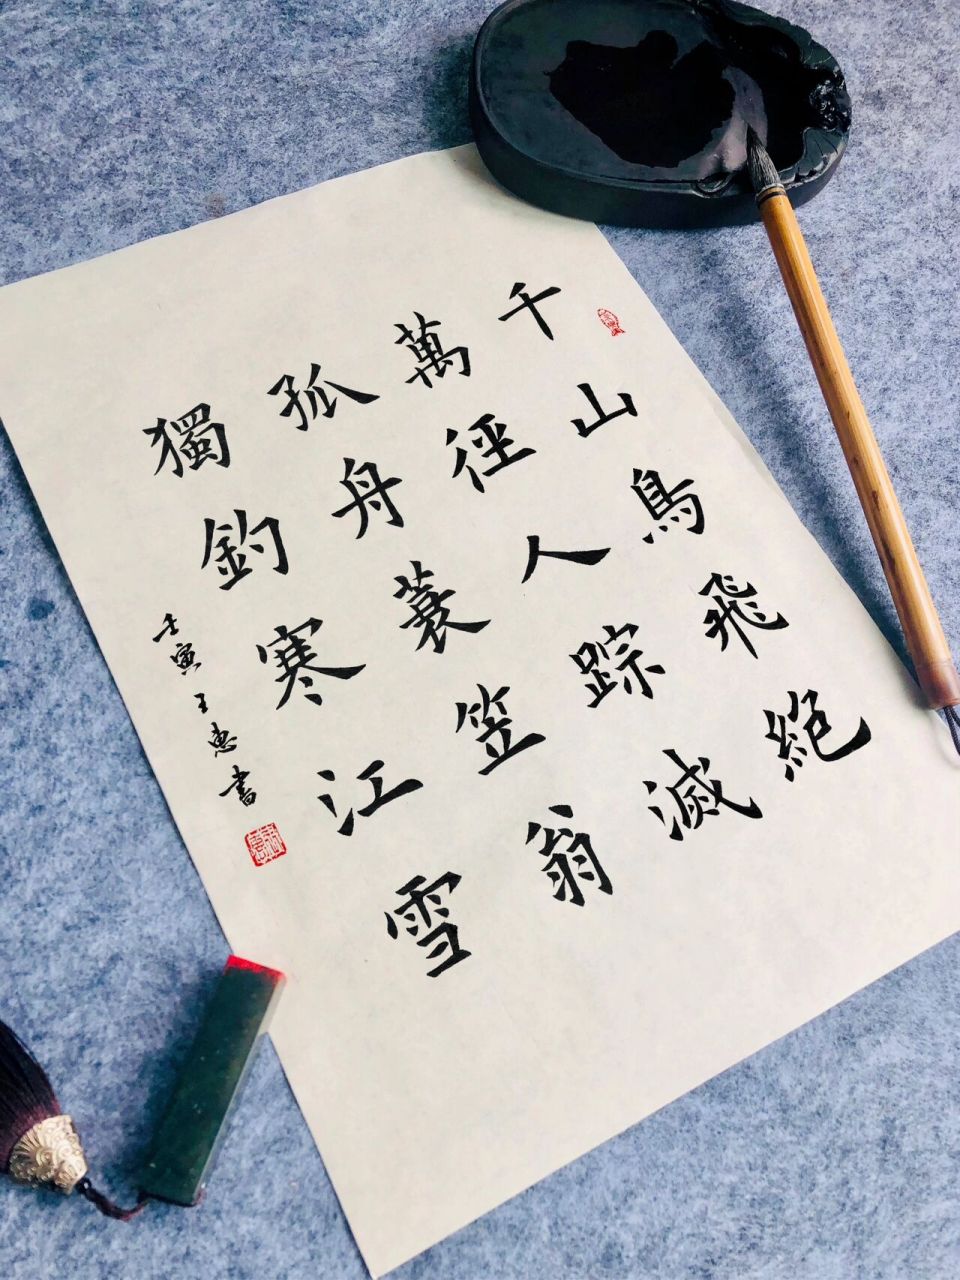 千山鳥飛絕
萬徑人踪滅
孤舟蓑笠翁
獨釣寒江雪
壬寅王惠書